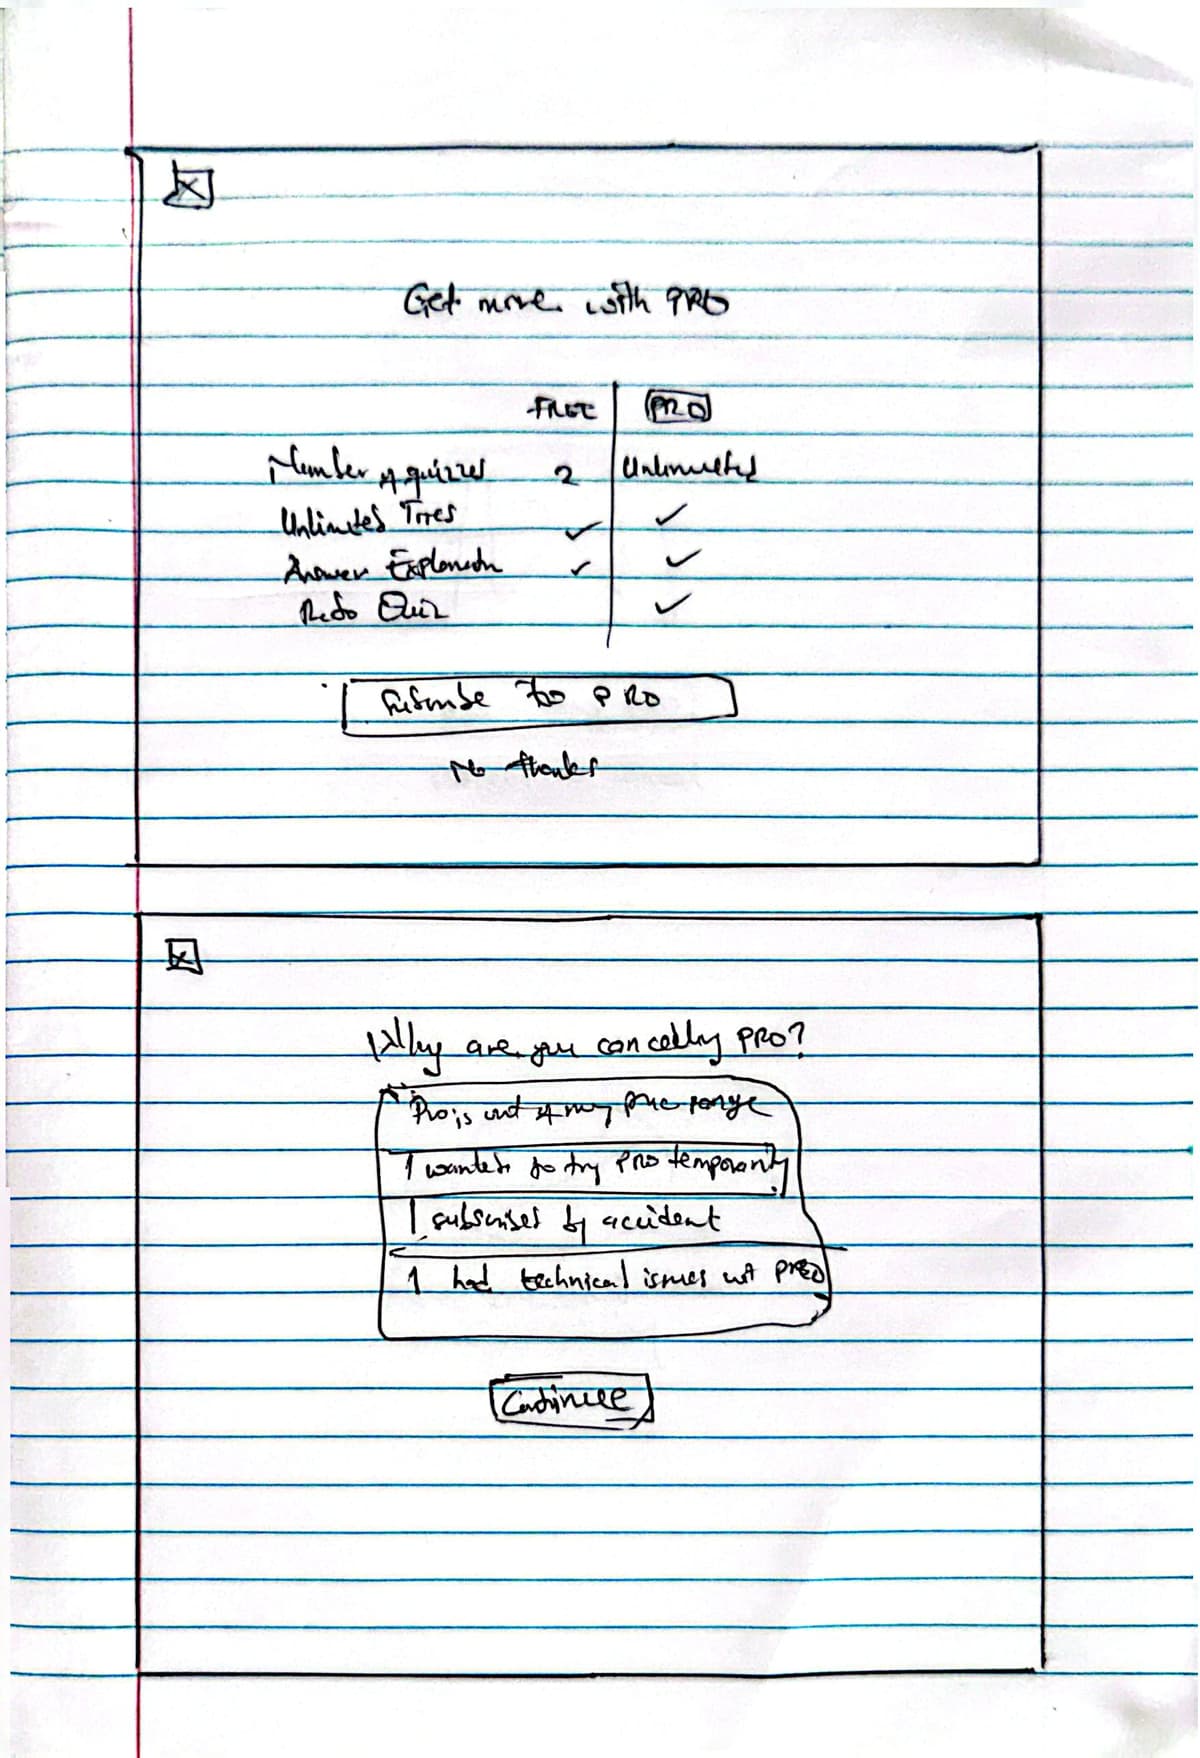 X
Get more with PRO
FREE PRO
Number of quizzes 2 Unlimited
Unlimited Tries ✓ ✓
Answer Explanation ✓ ✓
Redo Quiz ✓
Subscribe to PRO
No thanks
X
Why are you cancelling PRO?
Pro is out of my price range
I wanted to try PRO temporarily
I subscribed by accident
I had technical issues PRO
Continue